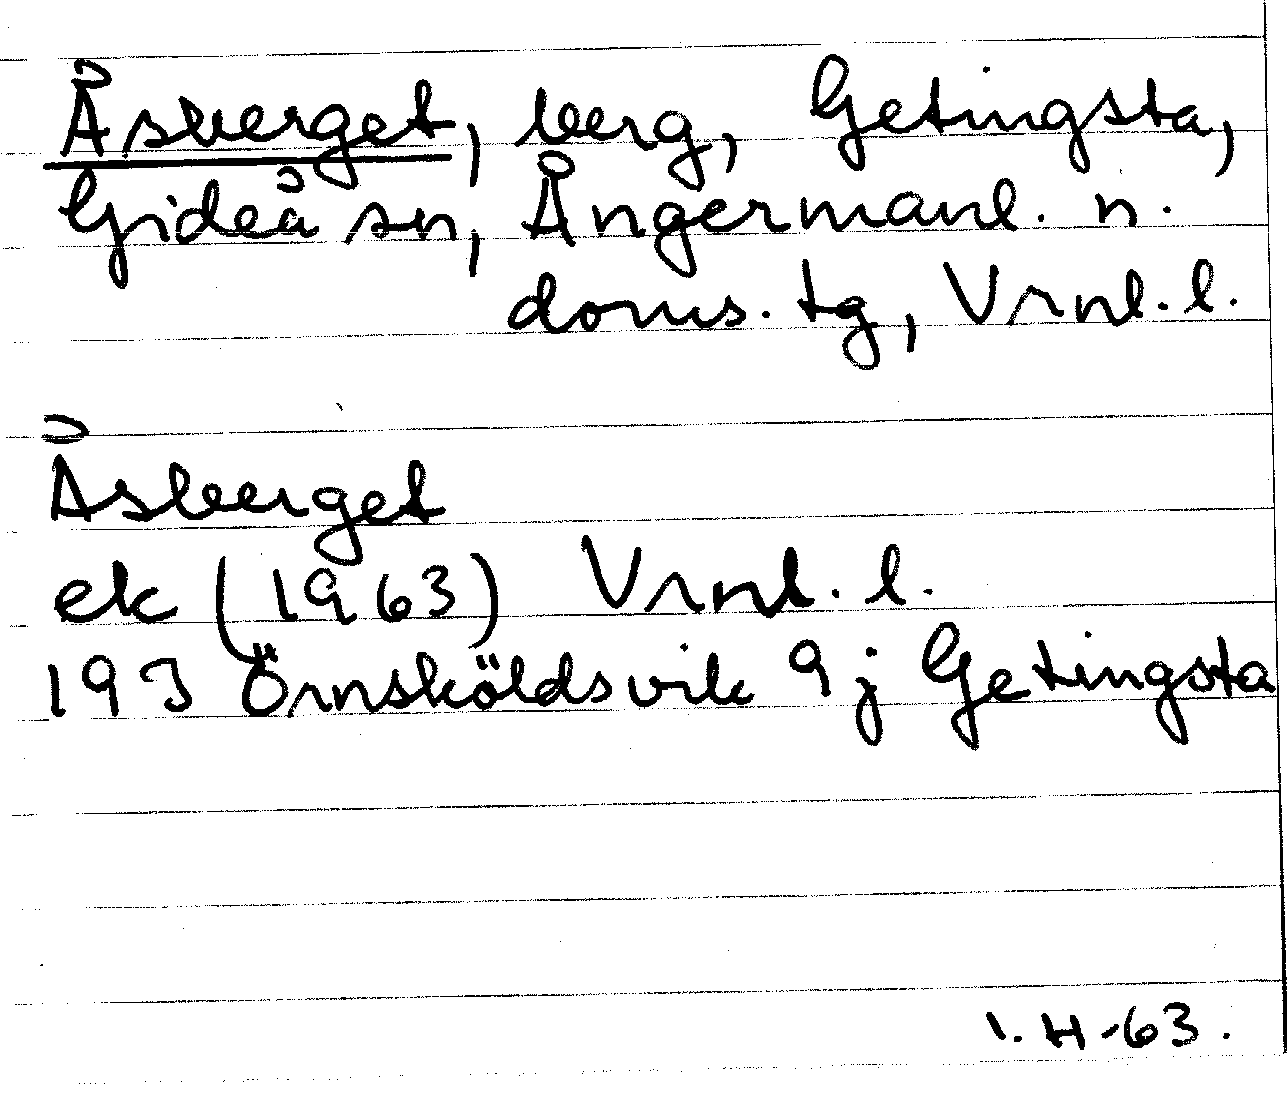 Åsberget, berg, Getingsta,
Gideå sn, Ångermanl. n.
doms. tg, Vrnl. l.
Åsberget
ek (1963) Vrnl. l.
19J Örnsköldsvik 9j Getingsta
I. H-63.